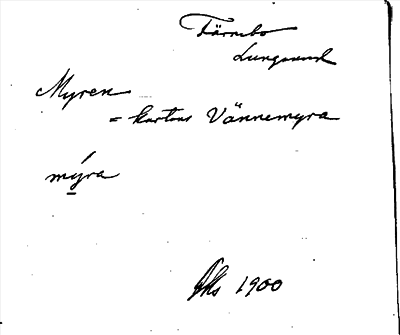 Färnebo
Lungsund
Myren
= kartans Vännemyra
mýra
1900